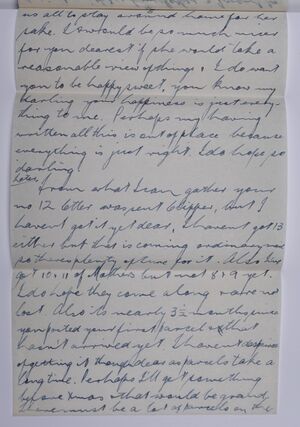 us all to stay around home for her
sake. I would be so much nicer
for you dearest if she would take a
reasonable view of things. I do want
you to be happy sweet, you know my
darling your happiness is just every-
thing to me. Perhaps my having
written all this is out of place because
everything is just right. I do hope so
darling
Later,
From what I can gather your
no 12 letter was sent Clipper, but I
havent got it yet dear, I havent got 13
either but that is coming ordinary
so theres plenty of time for it. Also
got 10 & 11 of Mothers but not 8 & 9 yet.
I do hope they come along & are not
lost. Also its nearly 3½ months since
you posted your first parcel & that
hasn't arrived yet. I havent
of getting it though dear as parcels take a
long time. Perhaps I'll get something
before Xmas & that would be grand.
There must be a lot of parcels on the